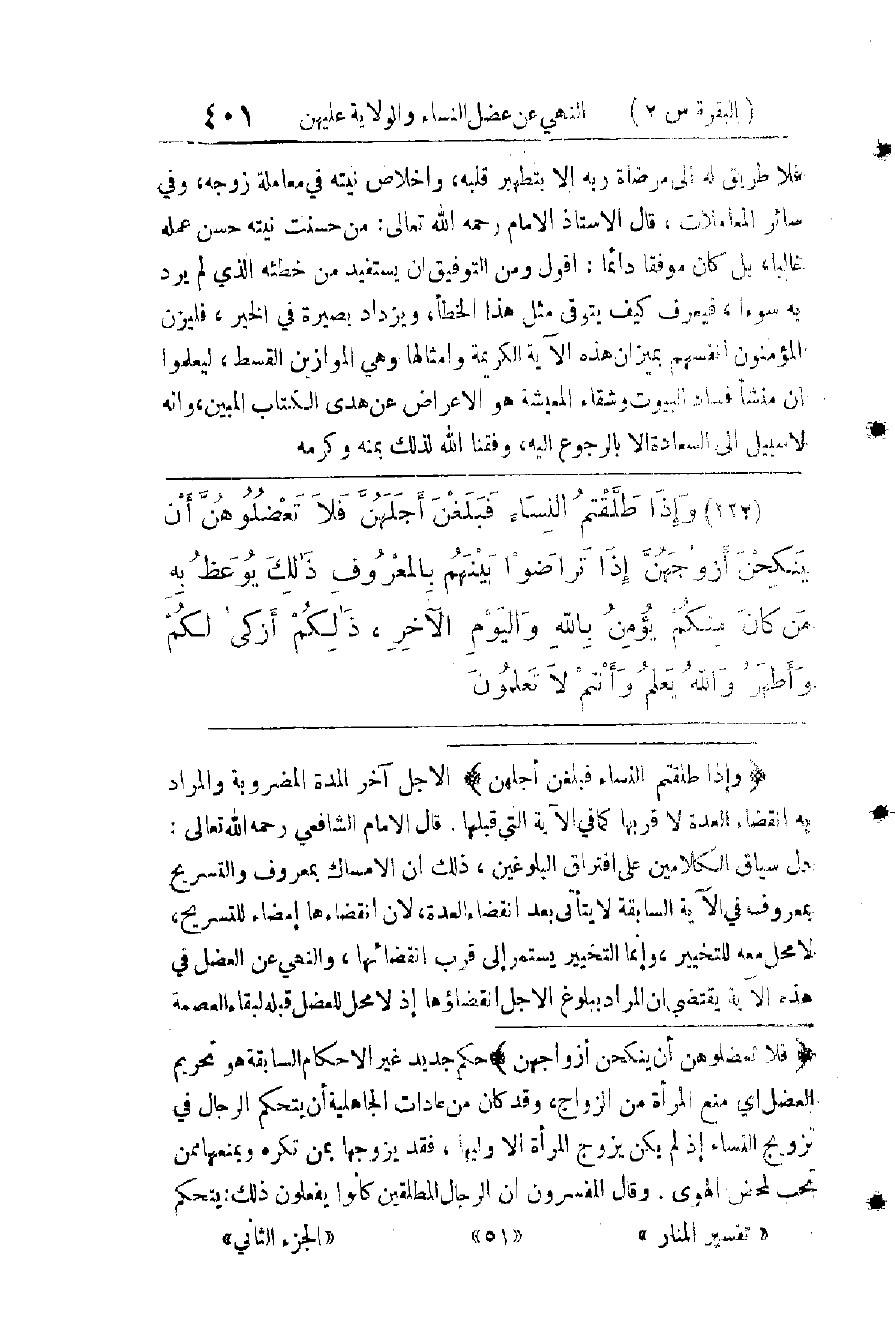 ( البقرة س ٢ ) النهي عن عضل النساء والولاية عليهن ٤٠١
فلا طريق له الى مرضاة ربه إلا بتطهير قلبه، واخلاص نيته في معاملة زوجه، وفي
سائر المعاملات ، قال الاستاذ الامام رحمه الله تعالى: من حسنت نيته حسن عمله
غالبا، بل كان موفقا دائما : اقول ومن التوفيق ان يستفيد من خطئه الذي لم يرد
به سوءا ، فيعرف كيف يتوقى مثل هذا الخطأ، ويزداد بصيرة في الخير ، فليزن
المؤمنون انفسهم بميزان هذه الآية الكريمة وامثالها وهي الموازين القسط ، ليعلموا
ان منشأ فساد البيوت وشقاء المعيشة هو الاعراض عن هدى الكتاب المبين، وانه
لاسبيل الى السعادة الا بالرجوع اليه، وفقنا الله لذلك بمنه وكرمه
(٢٣٢) وَإِذَا طَلَّقْتُمُ النِّسَاءَ فَبَلَغْنَ أَجَلَهُنَّ فَلاَ تَعْضُلُوهُنَّ أَنْ
يَنكِحْنَ أَزْوٰجَهُنَّ إِذَا تَرَاضَوْا بَيْنَهُم بِالمَعْرُوفِ ذٰلِكَ يُوعَظُ بِهِ
مَن كَانَ مِنكُمْ يُؤْمِنُ بِاللهِ وَاليَوْمِ الْآخِرِ ، ذٰلِكُمْ أَزكىٰ لَكُمْ
وَأَطهَرُ وَاللهُ يَعلَمُ وَأَنْتمْ لاَ تَعلمُونَ
﴿ وإذا طلقتم النساء فبلغن أجلهن ﴾ الاجل آخر المدة المضروبة والمراد
به انقضاء العدة لا قربها كما في الآية التي قبلها . قال الامام الشافعي رحمه الله تعالى :
دل سياق الكلامين على افتراق البلوغين ، ذلك ان الامساك بمعروف والتسريح
بمعروف في الآية السابقة لا يتأتى بعد انقضاء العدة، لان انقضاءها إمضاء للتسريح،
لا محل معه للتخيير ، وإنما التخيير يستمر إلى قرب انقضائها ، والنهي عن العضل في
هذه الآية يقتضي ان المراد ببلوغ الاجل انقضاؤها إذ لا محل للعضل قبله لبقاء العصمة
﴿ فلا تعضلوهن أن ينكحن أزواجهن ﴾ حكم جديد غير الاحكام السابقة هو تحريم
العضل اي منع المرأة من الزواج، وقد كان من عادات الجاهلية أن يتحكم الرجال في
تزويج النساء إذ لم يكن يزوج المرأة الا وليها ، فقد يزوجها بمن تكره ويمنعها ممن
تحب لمحض الهوى . وقال المفسرون ان الرجال المطلقين كانوا يفعلون ذلك: يتحكم
« تفسير المنار » «٥١» «الجزء الثاني»